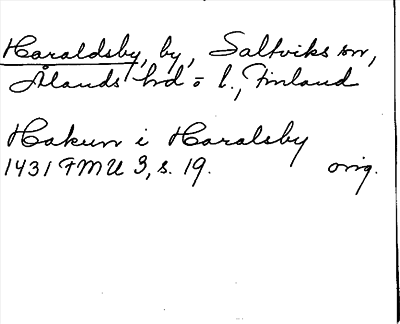 Haraldsby, by, Saltviks sn,
Ålands hd o l., Finland
Hakun i Haralsby
1431 FMU 3, s. 19. orig.